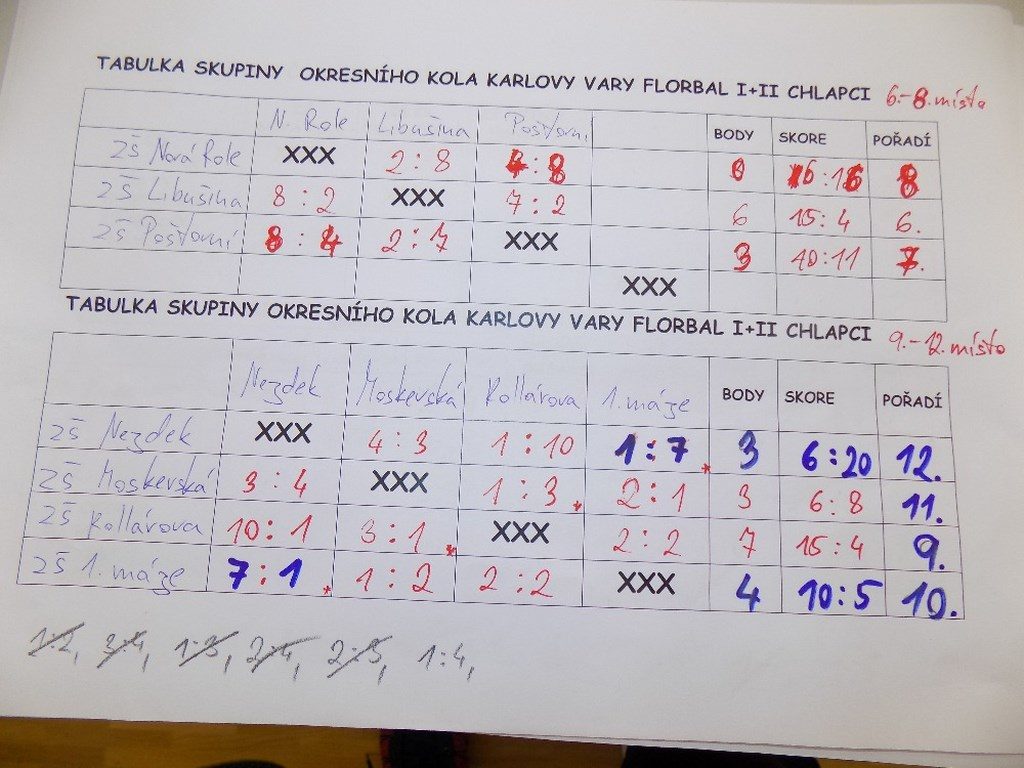 TABULKA SKUPINY OKRESNÍHO KOLA KARLOVY VARY FLORBAL I+II CHLAPCI 6.-8. místo
N. Role Libušina Poštovní BODY SKORE POŘADÍ
ZŠ Nová Role XXX 2:8 4:8 0 6:16 8
ZŠ Libušina 8:2 XXX 7:2 6 15:4 6.
ZŠ Poštovní 8:4 2:7 XXX 3 10:11 7.
XXX
TABULKA SKUPINY OKRESNÍHO KOLA KARLOVY VARY FLORBAL I+II CHLAPCI 9.-12. místo
Nejdek Moskevská Kollárova 1. máje BODY SKORE POŘADÍ
ZŠ Nejdek XXX 4:3 1:10 1:7 3 6:20 12.
ZŠ Moskevská 3:4 XXX 1:3 2:1 3 6:8 11.
ZŠ Kollárova 10:1 3:1 XXX 2:2 7 15:4 9.
ZŠ 1. máje 7:1 1:2 2:2 XXX 4 10:5 10.
1:2, 3:4, 1:3, 2:4, 2:3, 1:4,